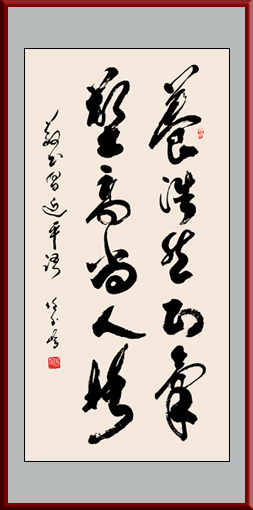 養浩然正氣
塑高尚人格
敬書習近平語